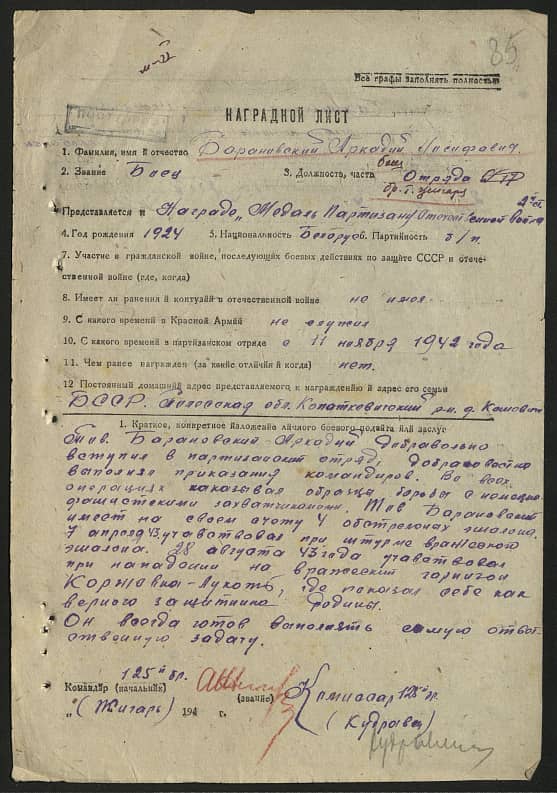 85
Все графы заполнять полностью
НАГРАДНОЙ ЛИСТ
1. Фамилия, имя и отчество Барановский Аркадий Иосифович.
2. Звание Боец 3. Должность, часть боец Отряда
бр. т. Жигаря
Представляется к Награде „Медаль Партизану Отечественной войны 2й ст.
4. Год рождения 1924 5. Национальность Белорус 6. Партийность б/п
7. Участие в гражданской войне, последующих боевых действиях по защите СССР и отече-
ственной войне (где, когда)
8. Имеет ли ранения и контузий в отечественной войне не имел
9. С какого времени в Красной Армии не служил
10. С какого времени в партизанском отряде с 11 ноября 1942 года
11. Чем ранее награжден (за какие отличия и когда) нет.
12 Постоянный домашний адрес представляемого к награждению и адрес его семьи
БССР. Полесская обл. Копаткевичский р-н. д.
1. Краткое, конкретное изложение личного боевого подвига или заслуг
Тов. Барановский Аркадий добравольно
вступил в партизанский отряд, добрасовестно
выполнял приказания командиров. Во всех
операциях показывал образцы борьбы с немецко
фашистскими захватчиками. Тов Барановский
имеет на своем счету 4 обстреляных эшелона.
7 апреля 43 учавствовал при штурме вражеского
эшалона. 28 августа 43 года учавствовал
при нападении на вражеский горнизон
Коржевка-Лукожь, где показал себя как
верного защитника Родины.
Он всегда готов выполнять самую ответ
ственную задачу.
125й бр.
Командир (начальник) (звание) Комиссар 125й бр
„ (Жигарь) 194 г. (Кудравец)